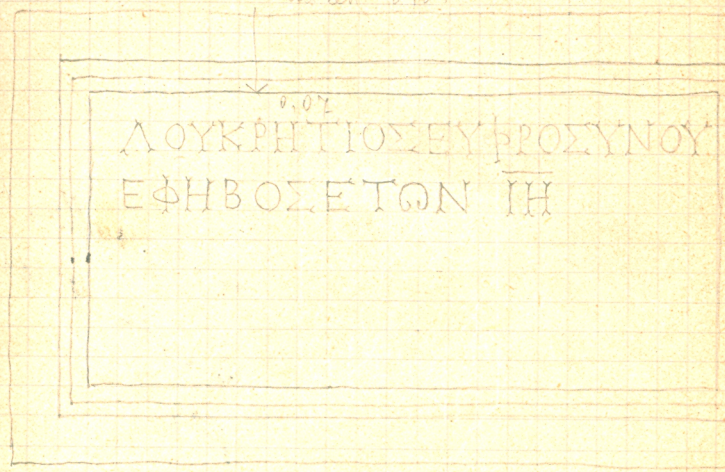 0.07
ΛΟΥΚΡΗΤΙΟΣΕΥΦΡΟΣΥΝΟΥ
ΕΦΗΒΟΣΕΤΩΝ ΙΗ